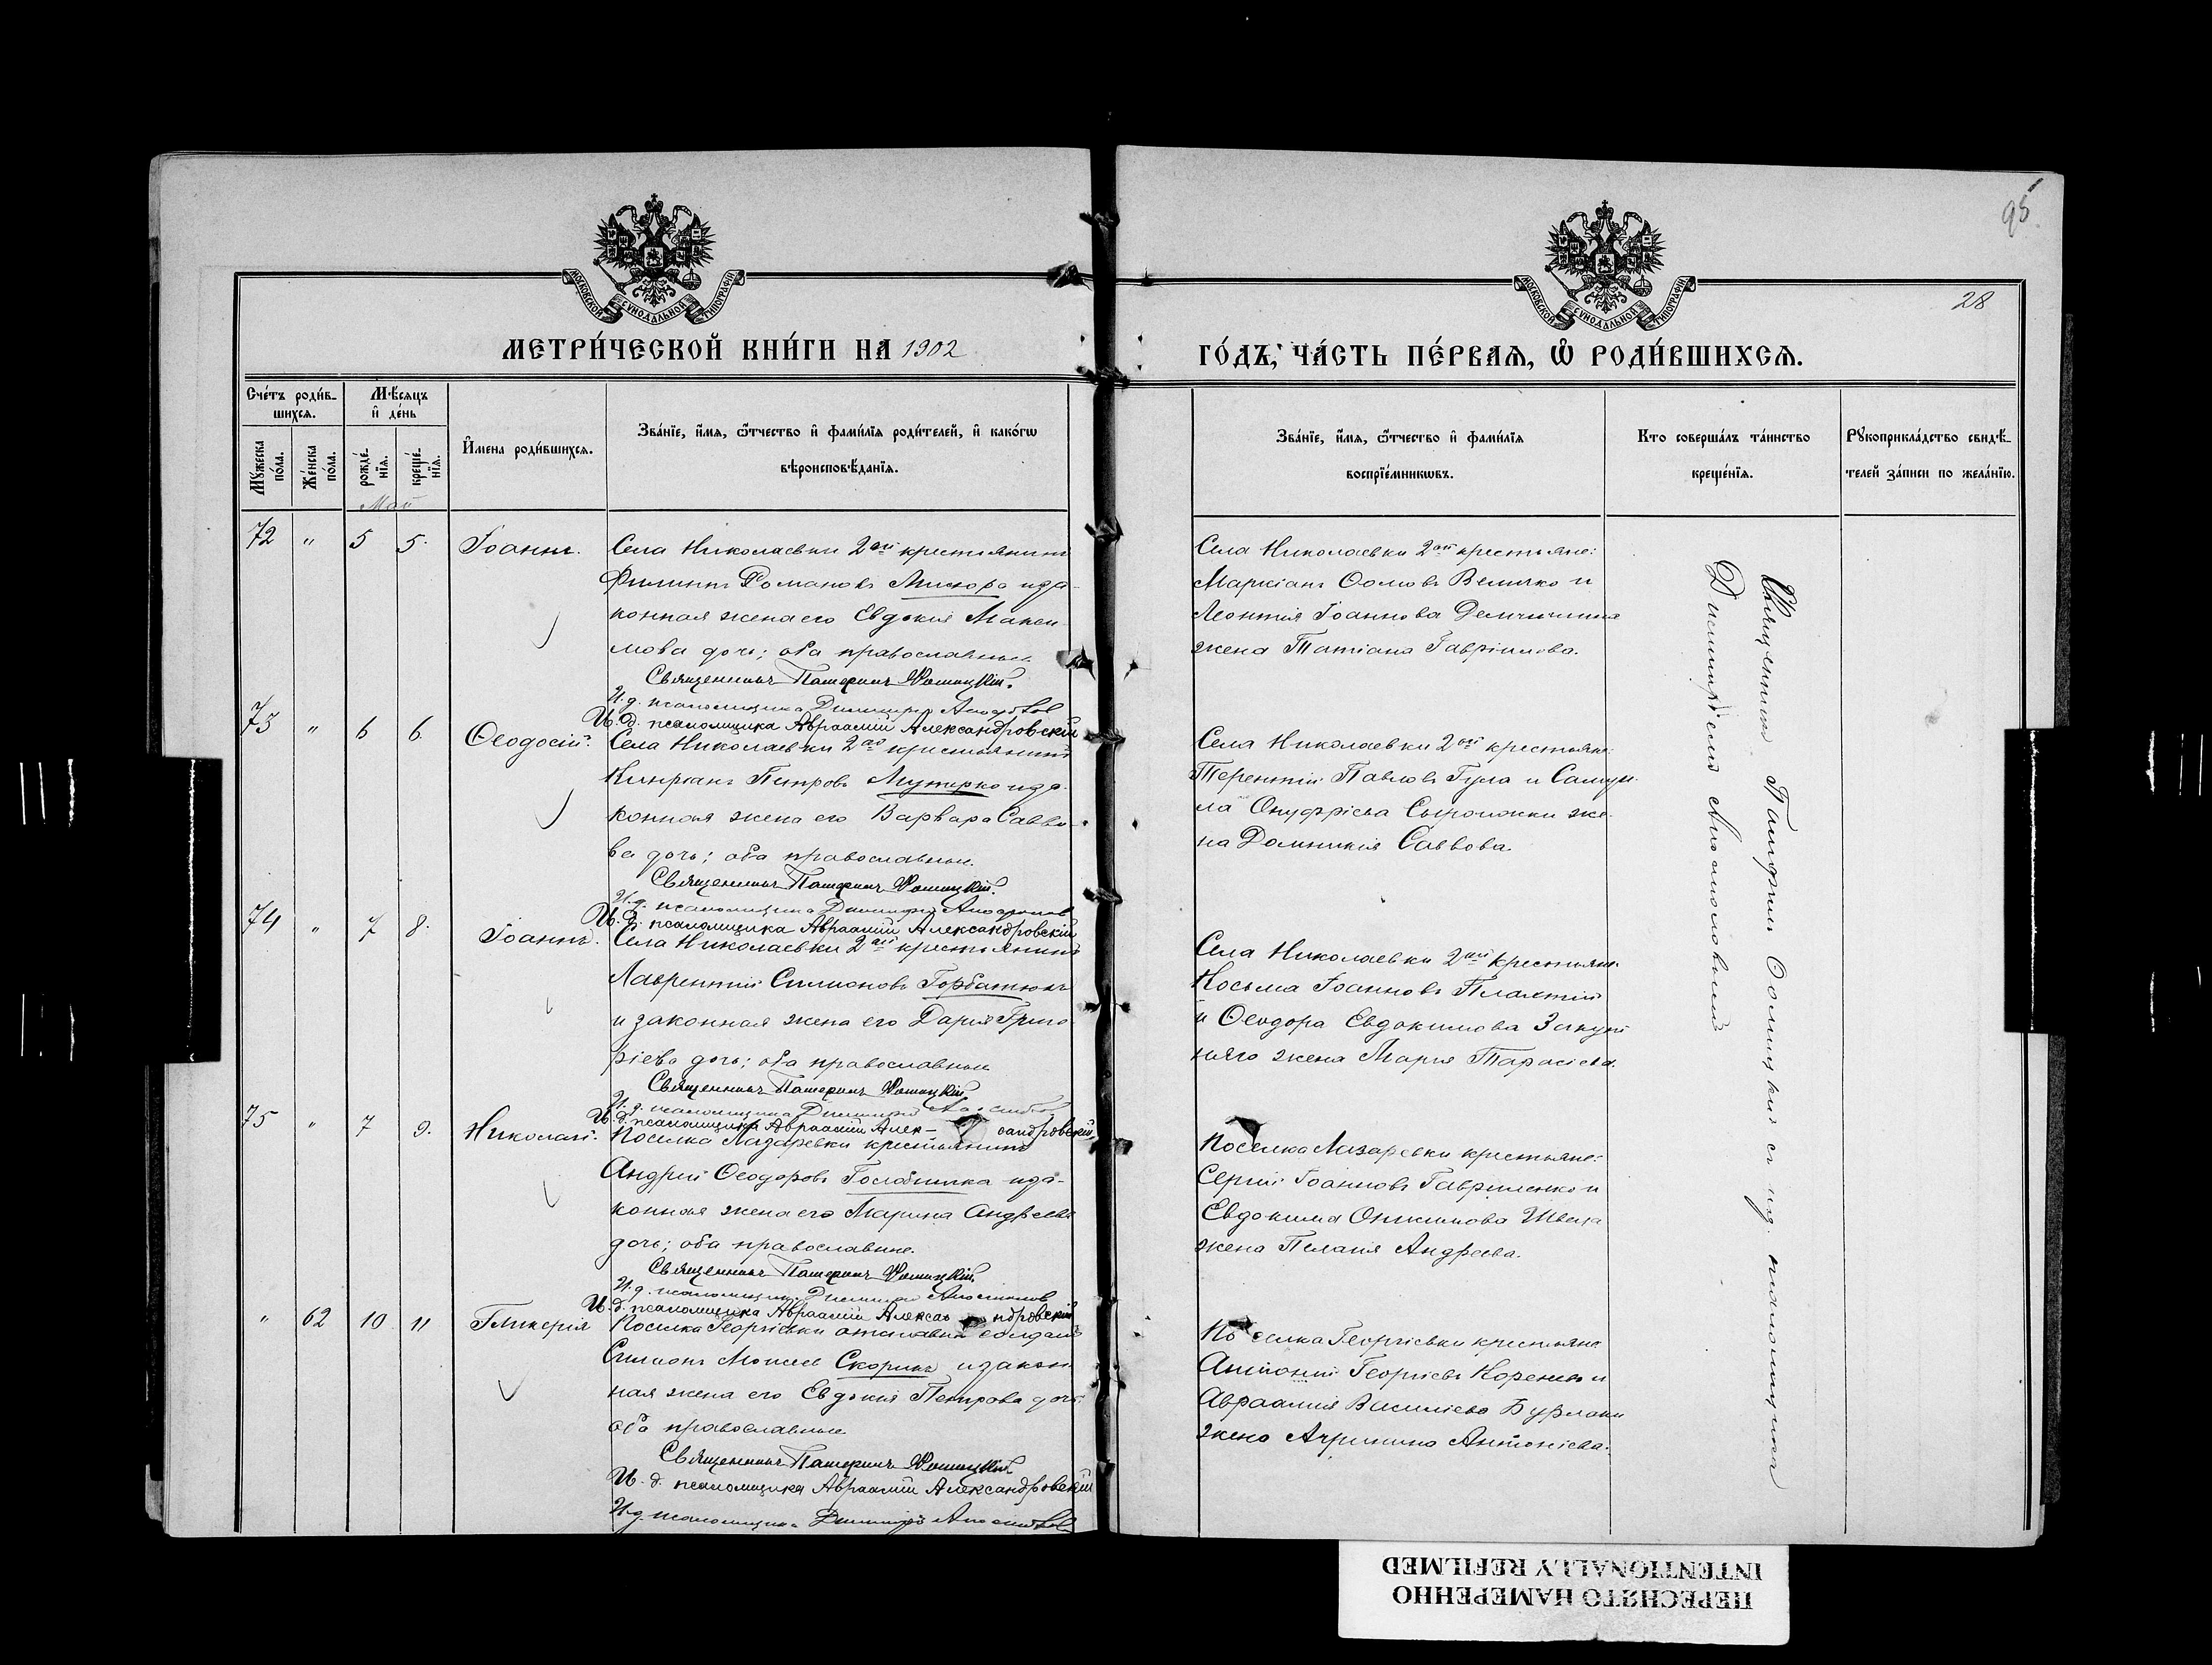 95
28
МОСКОВСКОЙ СУНОДАЛЬНОЙ ТИПОГРАФІИ
МОСКОВСКОЙ СУНОДАЛЬНОЙ ТИПОГРАФІИ
МЕТРИ́ЧЕСКОЙ КНИ́ГИ НА 1902
ГО́ДЪ, ЧА́СТЬ ПЕ́РВАЯ, Ѡ РОДИ́ВШИХСЯ.
Сче́тъ роди́в-
шихся.
Мꙋжеска по́ла.
Же́нска по́ла.
Мѣ́сяцъ
и҆ де́нь
рожде́-
нїя.
креще́-
нїя.
Май
И҆мена роди́вшихся.
Зва́нїе, и҆́мя, ѻ҆́тчество и҆ фами́лїя роди́телей, и҆ како́гѡ
вѣроисповѣ́данїя.
Зва́нїе, и҆́мя, ѻ҆́тчество и҆ фами́лїя
воспрїе́мникѡвъ.
Кто соверша́лъ та́инство
креще́нїя.
Рꙋкоприкла́дство свидѣ́-
телей за́писи по жела́нїю.
72 " 5 5. Іоаннъ.
Села Николаевки 2ой крестьянинъ
Филиппъ Романовъ Мисюра и за-
конная жена его Евдокія Макси-
мова дочь; оба православные.
Священникъ
И. д. псаломщика Димитрій
И. д. псаломщика Авраамій Александровскій
Села Николаевки 2ой крестьяне:
Маркіанъ Ѳомовъ Величко и
Леонтія Іоаннова
жена Татіана Гавріилова.
73 " 6 6. Ѳеодосій.
Села Николаевки 2ой крестьянинъ
Кипріанъ Петровъ и за-
конная жена его Варвара Савво-
ва дочь; оба православные.
Священникъ
И. д. псаломщика Димитрій
И. д. псаломщика Авраамій Александровскій
Села Николаевки 2ой крестьяне:
Терентій Павловъ Гула и Самуи-
ла Онуфріева Сыроижки же-
на Домникія Саввова.
74 " 7 8. Іоаннъ.
Села Николаевки 2ой крестьянинъ
Лаврентій Симионовъ Горбатюкъ
и законная жена его Дарія Григо-
ріева дочь; оба православные
Священникъ
И. д. псаломщика Димитрій
И. д. псаломщика Авраамій Алек- сандровскій
Села Николаевки 2ой крестьяне
Косьма Іоанновъ
и Ѳеодора Евдокимова
жена Марія Тарасіева.
75 " 7 9. Николай.
Поселка Лазаревки крестьянинъ
Андрей Ѳеодоровъ и за-
конная жена его Марина Андреева
дочь; оба православные.
Священникъ
И. д. псаломщика Димитрій
И. д. псаломщика Авраамій Алекса ндровскій
Поселка Лазаревки крестьяне:
Сергій Іоанновъ Гавриленко и
Евдокима Онисимова Швеца
жена Пелагія Андреева.
" 62 10 11 Гликерія
Поселка Георгіевки отставной солдатъ
Симионъ Моисеевъ Скорикъ и закон-
ная жена его Евдокія Петрова дочь;
оба православные
Священникъ
И. д. псаломщика Авраамій Александровскій
И. д. псаломщика Димитрій
Поселка Георгіевки крестьяне
Антоній Георгіевъ и
Авраамія Василіева Бурлаки
жена Агрипина Антоніева.
Священникъ съ и. д. псаломщика
ПЕРЕСНЯТО НАМЕРЕННО
INTENTIONALLY REFILMED